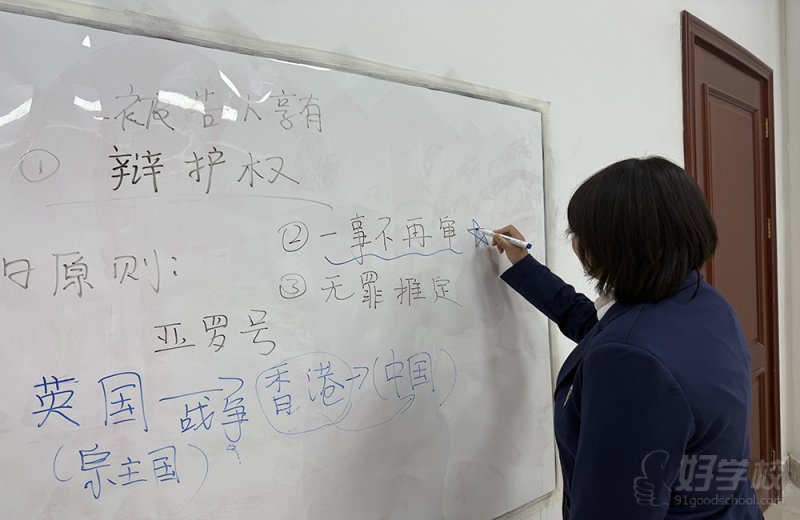 被告人享有
① 辩护权
② 一事不再审 ☆
原则:
③ 无罪推定
亚罗号
英国 → 香港 → (中国)
战争
(宗主国)
好学校
91goodschool.com